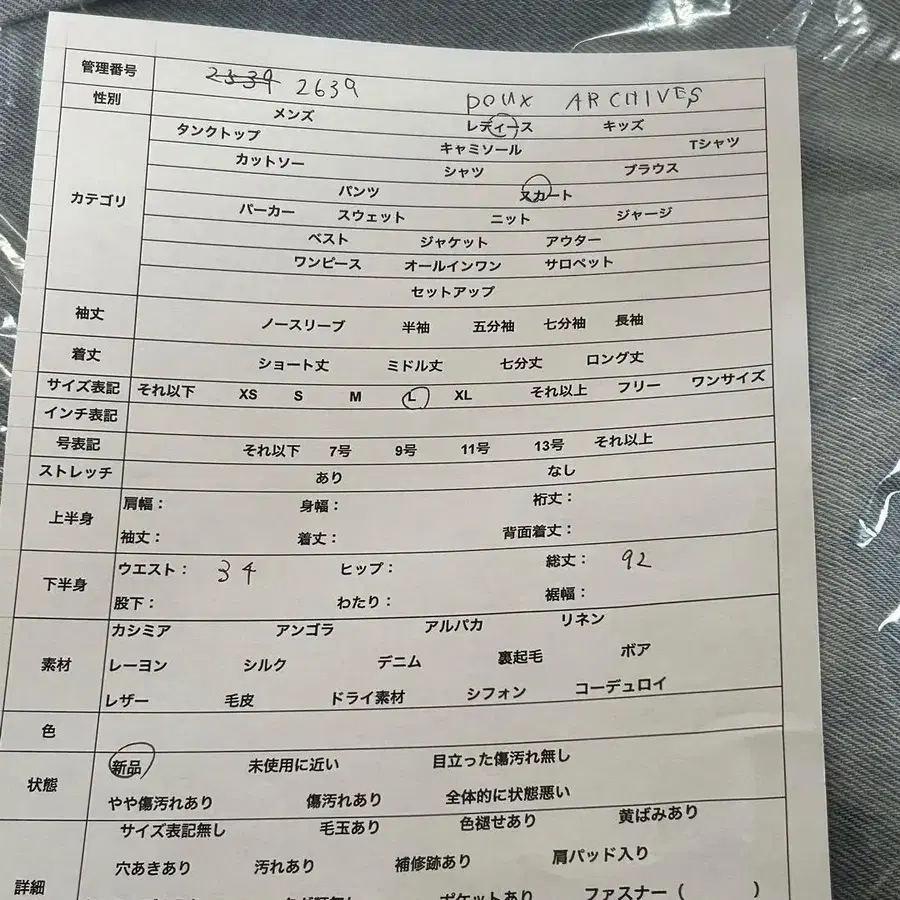 管理番号 2539 2639 DOUX ARCHIVES
性別 メンズ レディース キッズ
カテゴリ
タンクトップ キャミソール Tシャツ
カットソー シャツ ブラウス
パンツ スカート
パーカー スウェット ニット ジャージ
ベスト ジャケット アウター
ワンピース オールインワン サロペット
セットアップ
袖丈 ノースリーブ 半袖 五分袖 七分袖 長袖
着丈 ショート丈 ミドル丈 七分丈 ロング丈
サイズ表記 それ以下 XS S M L XL それ以上 フリー ワンサイズ
インチ表記
号表記 それ以下 7号 9号 11号 13号 それ以上
ストレッチ あり なし
上半身
肩幅： 身幅： 裄丈：
袖丈： 着丈： 背面着丈：
下半身
ウエスト： 34 ヒップ： 総丈： 92
股下： わたり： 裾幅：
素材
カシミア アンゴラ アルパカ リネン
レーヨン シルク デニム 裏起毛 ボア
レザー 毛皮 ドライ素材 シフォン コーデュロイ
色
状態
新品 未使用に近い 目立った傷汚れ無し
やや傷汚れあり 傷汚れあり 全体的に状態悪い
詳細
サイズ表記無し 毛玉あり 色褪せあり 黄ばみあり
穴あきあり 汚れあり 補修跡あり 肩パッド入り
ポケットあり ファスナー（ ）